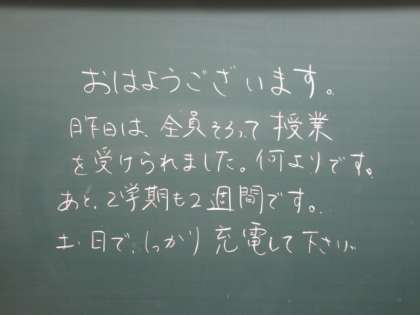 おはようございます。
昨日は、全員そろって授業
を受けられました。何よりです。
あと、2学期も2週間です。
土・日で、しっかり充電して下さい。